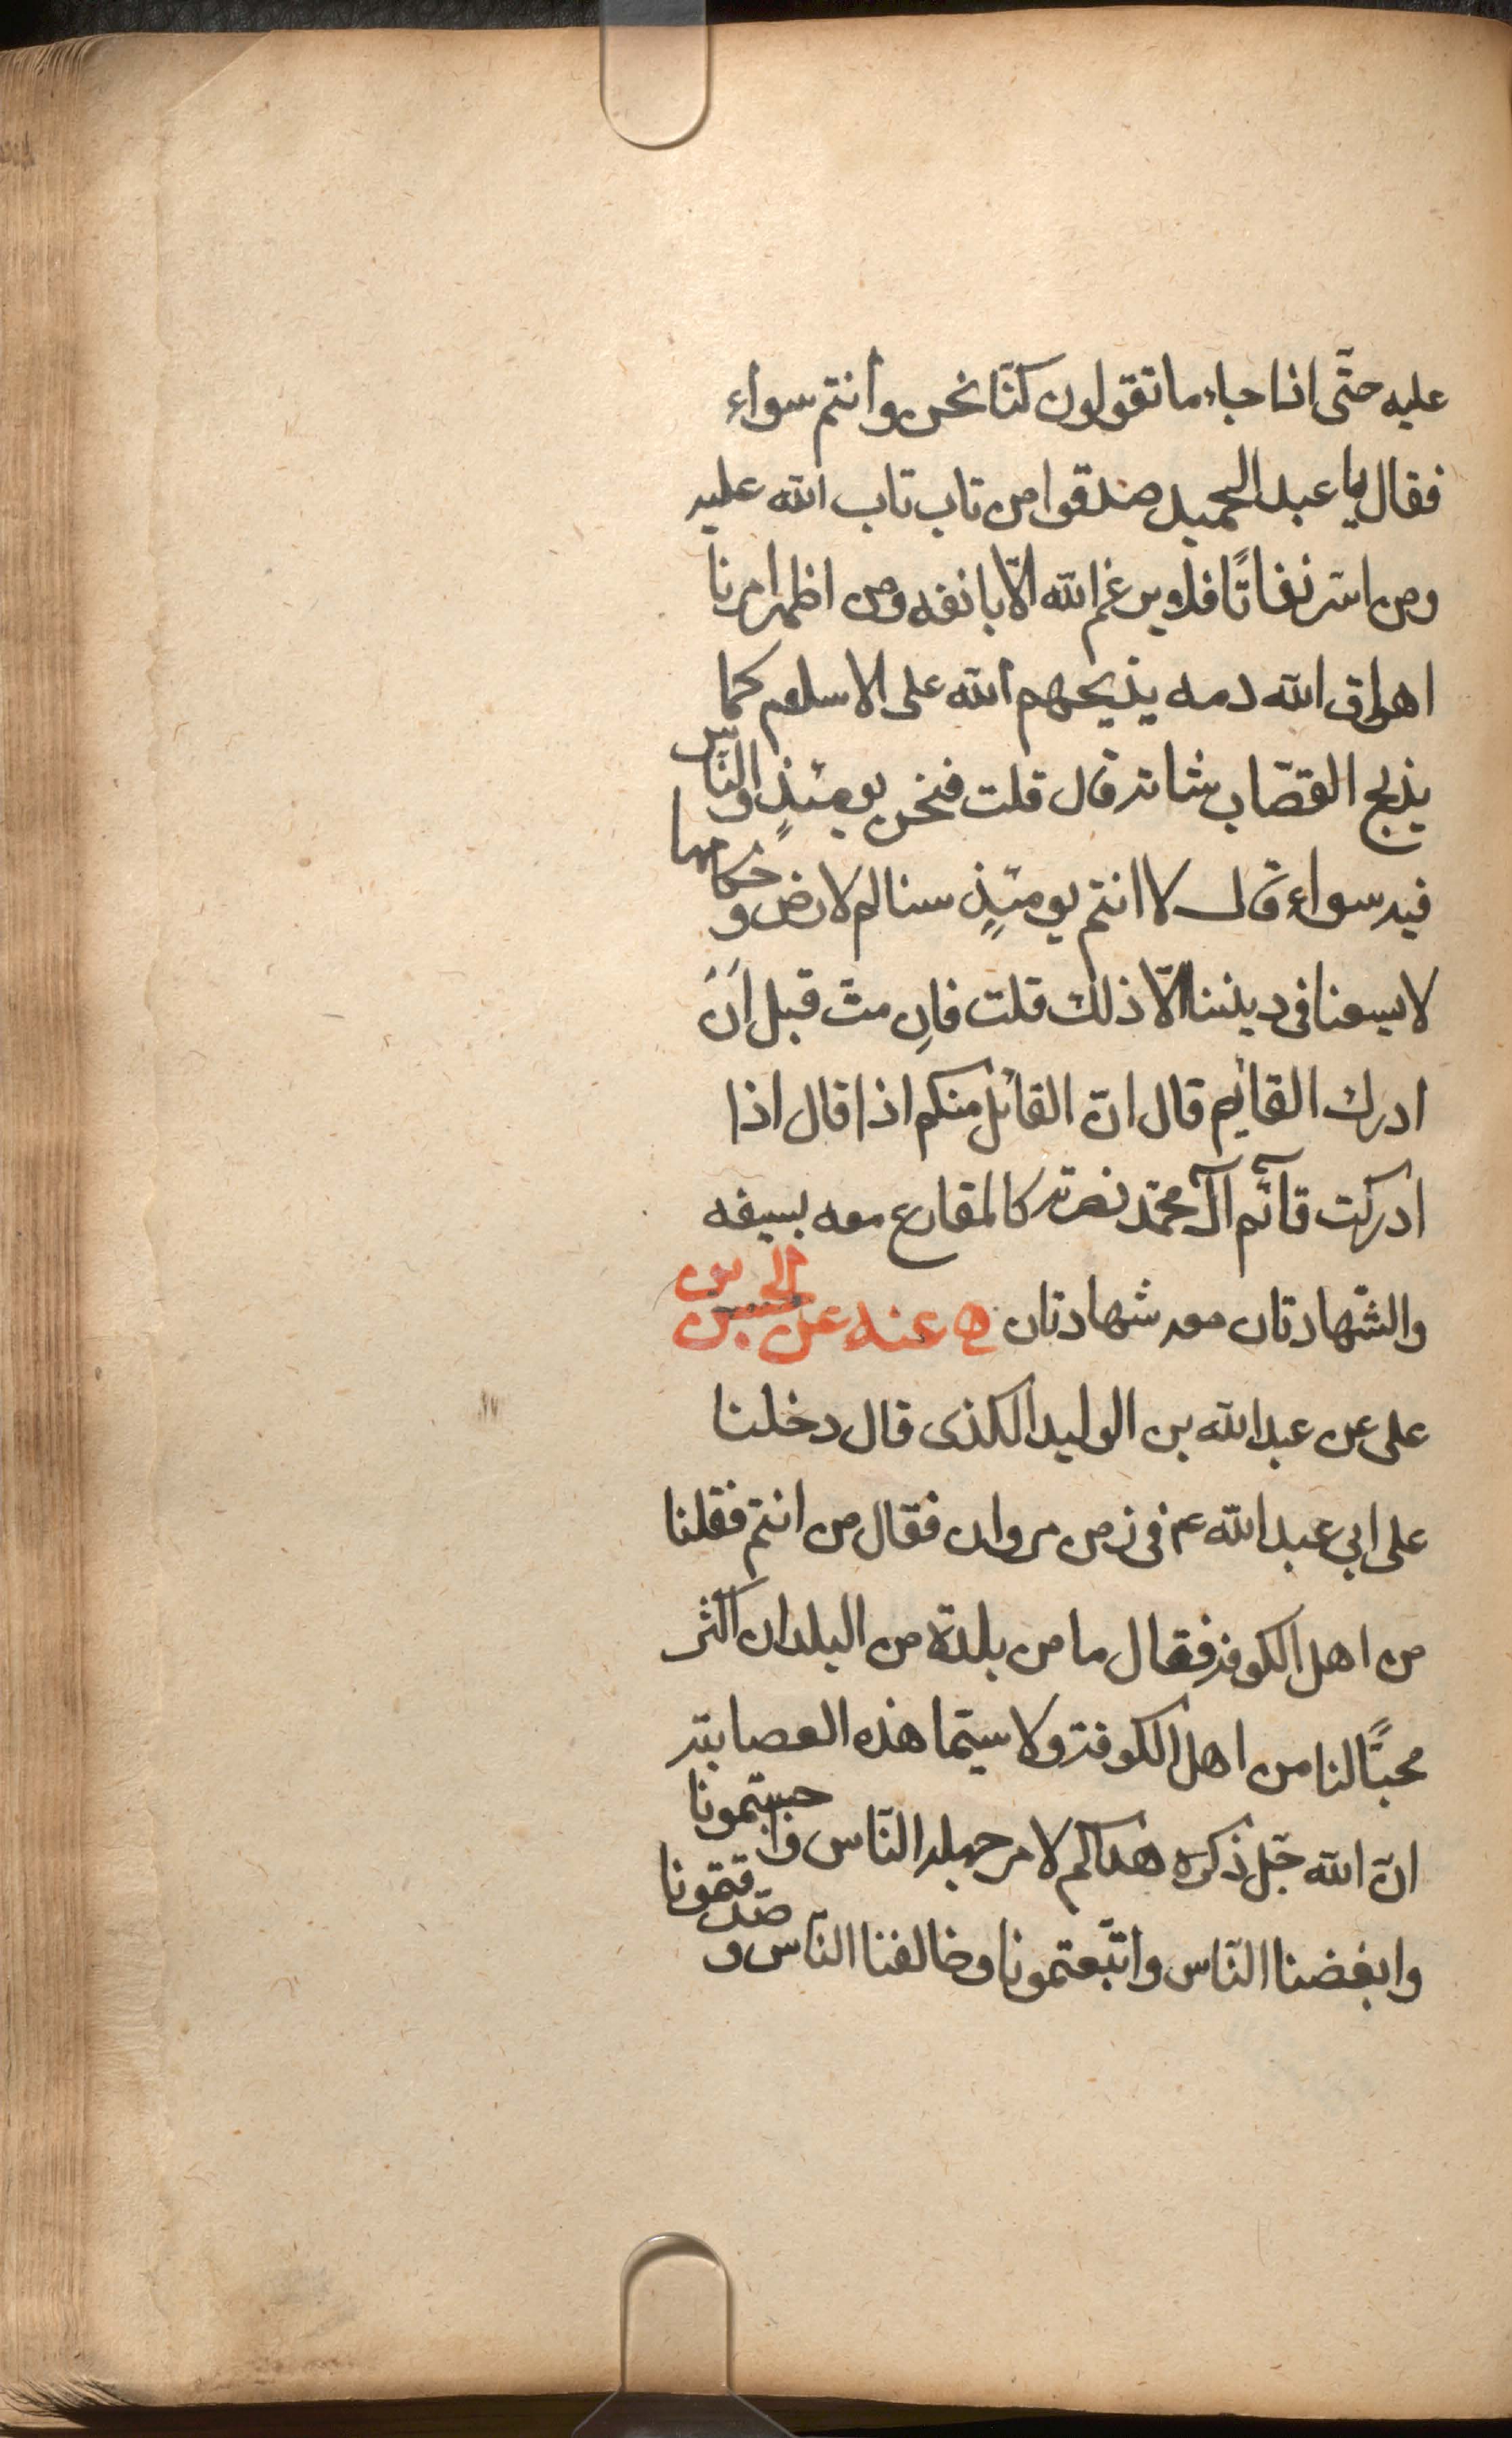 عليه حتّى اذا جاء ما تقولون كنّا نحن وانتم سواء
فقال يا عبد الحميد صدقوا من تاب تاب الله عليه
ومن اسّر نفاقًا فلا يرغم الله الّا بانفه ومن اظهر امرنا
اهراق الله دمه يذبحهم الله على الاسلام كما
يذبح القصّاب شاته قال قلت فنحن يومئذٍ والنّاس
فيه سواء قال لا انتم يومئذٍ سنام الارض وحكامها
لا يسعنا فى ديننا الّا ذلك قلت فان متّ قبل ان
ادرك القايم قال انّ القائل منكم اذا قال اذا
ادركت قآئم آل محمّد نصرته كالمقارع معه بسيفه
والشّهادتان معه شهادتان عنه عن الحسين بن
على عن عبد الله بن الوليد الكندى قال دخلنا
على ابي عبد الله ع فى زمن مروان فقال من انتم فقلنا
من اهل الكوفه فقال ما من بلدة من البلدان اكثر
محبًّا لنا من اهل الكوفة ولا سيّما هذه العصابة
انّ الله جّل ذكره هداكم لامر جهله النّاس واجبتمونا
وابغضنا النّاس واتّبعتمونا وخالفنا النّاس وصدّقتمونا